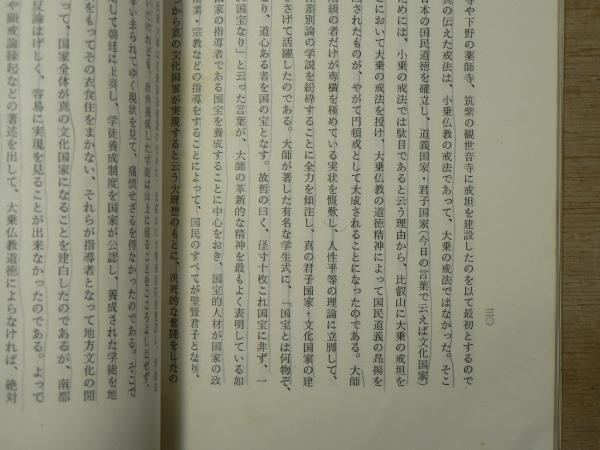 三〇
寺や下野の薬師寺、筑紫の観世音寺に戒壇を建設したのを以て最初とするので
真の伝えた戒法は、小乗仏教の戒法であって、大乗の戒法ではなかった。そこ
日本の国民道徳を確立し、道義国家・君子国家(今日の言葉で云えば文化国家)
ためには、小乗の戒法では駄目であると云う理由から、比叡山に大乗の戒壇を
において大乗の戒法を授け、大乗仏教の道徳精神によって国民道義の昂揚を
されたものが、やがて円頓戒として大成されることになったのである。大師
階級の者だけが専横を極めている実状を慨歎し、人性平等の理論に立脚して、
性差別論の学説を紛砕することに全力を傾注し、真の君子国家・文化国家の建
ささげて活躍したのである。大師が著した有名な学生式に、「国宝とは何物ぞ、
なり、道心ある者を国の宝となす。故哲の曰く、径寸十枚これ国宝に非ず、一
国宝なり」と云った言葉が、大師の革新的な精神を最もよく表明している如
国家の指導者である国宝を養成することに中心をおき、国宝的人材が国家の政
業・宗教などの指導をすることによって、国民のすべてが聖賢君子となり、
から真の文化国家が実現すると云う大理想のもとに、決死的な奮闘をしたの
いたけれども、折角養成した学徒は山上に留ることをこころよしとせず、
奪い去られてゆく現状を見て、痛憤せざるを得なかったのである。そこで
として朝廷に上奏し、学徒養成制度を国家が公認し、養成された学徒を地
をもってその衣食住をまかない、それらが指導者となって地方文化の開
って、国家全体が真の文化国家になることを建白したのであるが、南都
反論はげしく、容易に実現を見ることが出来なかったのである。よって
や顕戒論縁起などの著述を出して、大乗仏教道徳によらなければ、絶対